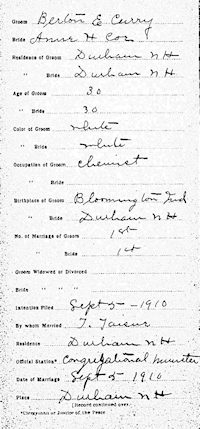 Groom Berton E Curry
Bride Anne H Coe
Residence of Groom Durham N H
" Bride Durham N H
Age of Groom 30
" Bride 30
Color of Groom white
" Bride white
Occupation of Groom chemist
" Bride
Birthplace of Groom Bloomington Ind
" Bride Durham N H
No. of Marriage of Groom 1st
" Bride 1st
Groom Widowed or Divorced
Bride " " "
Intention Filed Sept 5 - 1910
By whom Married T.
Residence Durham N H
Official Station* Congregational Minister
Date of Marriage Sept 5 - 1910
Place Durham N H
(Record continued over).
*Clergyman or Justice of the Peace